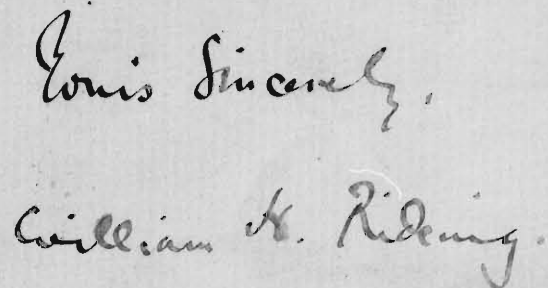 Yours Sincerely.
William H. Rideing.